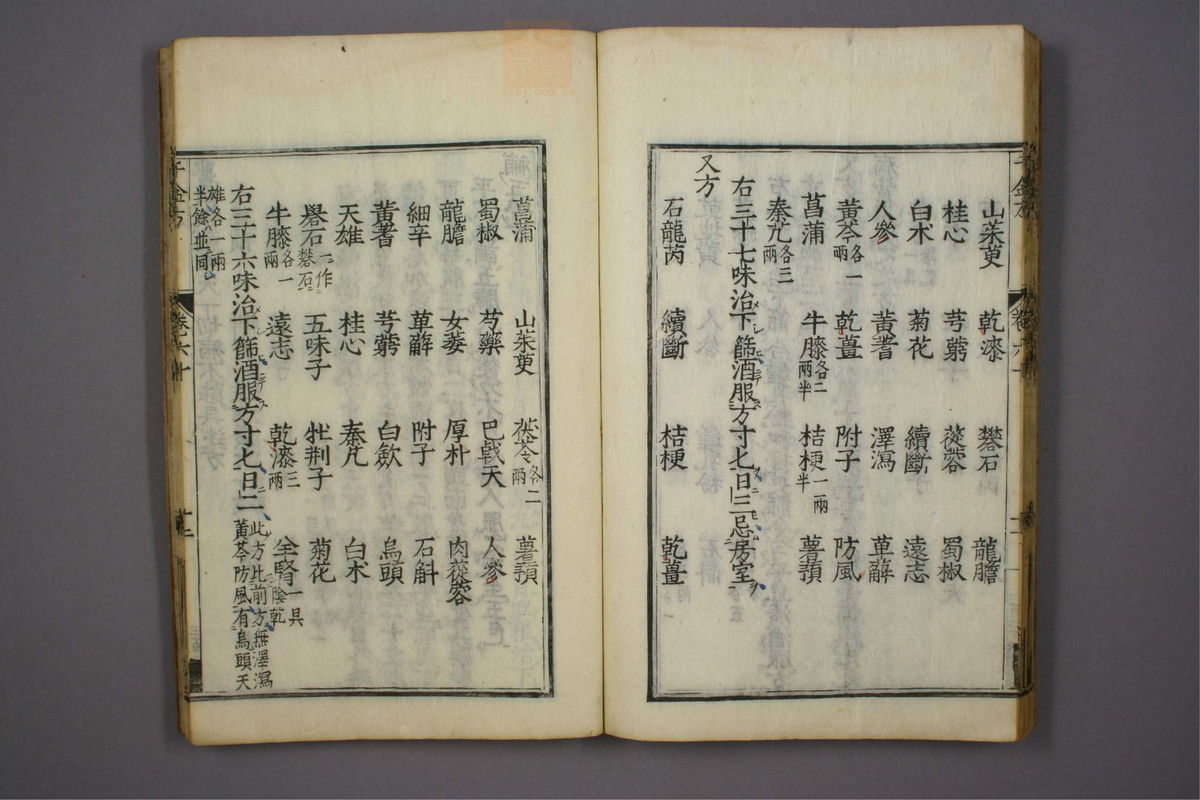 山茱萸 乾漆 礬石 龍膽
桂心 芎藭 蓯蓉 蜀椒
白朮 菊花 續斷 遠志
人參 黃耆 澤瀉 萆薢
黃芩各一兩 乾薑 附子 防風
菖蒲 牛膝各二兩半 桔梗一兩半 薯蕷
秦艽各三兩
右三十七味治下篩酒服方寸匕日三忌房室
又方
石龍芮 續斷 桔梗 乾薑
菖蒲 山茱萸 茯苓各二兩 薯蕷
蜀椒 芍藥 巴戟天 人參
龍膽 女萎 厚朴 肉蓯蓉
細辛 萆薢 附子 石斛
黃耆 芎藭 白歛 烏頭
天雄 桂心 秦艽 白朮
礜石一作礬石 五味子 牡荆子 菊花
牛膝各一兩 遠志 乾漆三兩 羊腎一具陰乾
右三十六味治下篩酒服方寸匕日二此方比前方無澤瀉黃芩防風有烏頭天雄各一兩半餘並同
千金方 卷六十